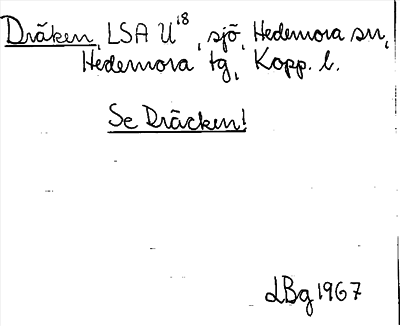 Dräken, LSA U18, sjö, Hedemora sn,
Hedemora tg, Kopp. l.
Se Dräcken!
LBg 1967